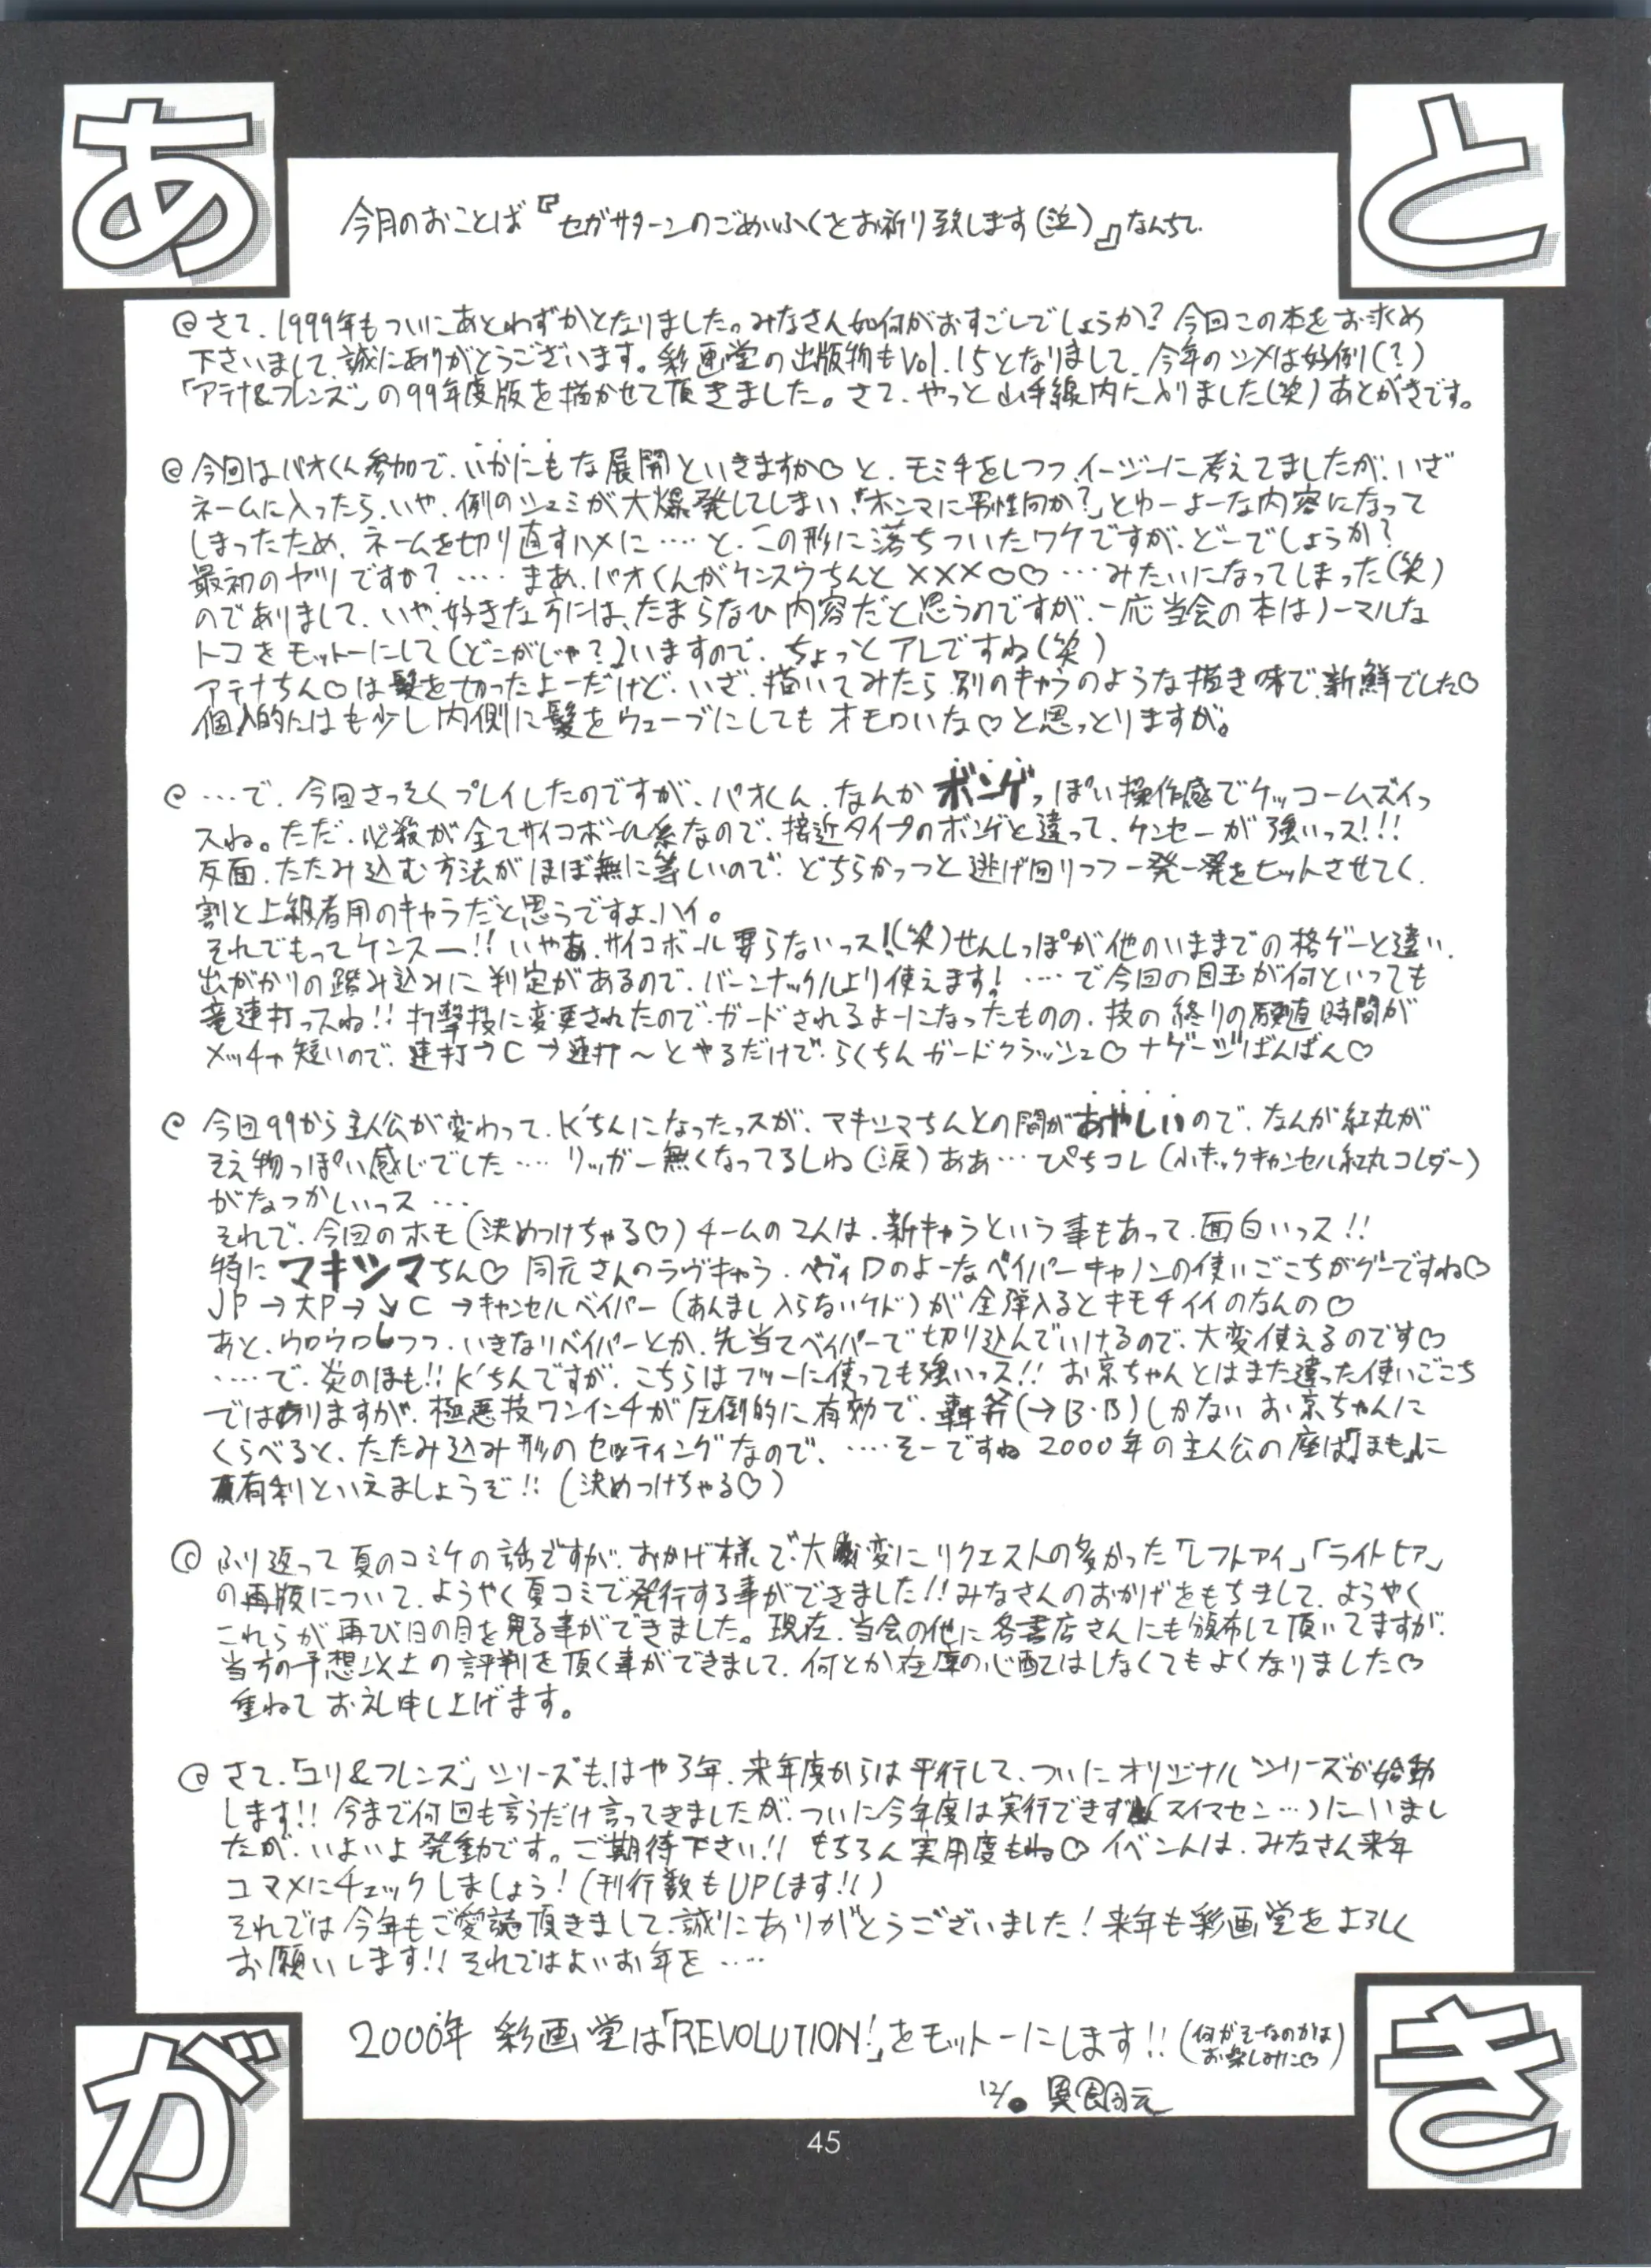 あとがき
今月のおことば『セガサターンのごめいふくをお祈り致します(泣)』なんちて.
@さて、1999年もついにあとわずかとなりました。みなさん如何がおすごしでしょうか? 今回この本をお求め
下さいまして、誠にありがとうございます。彩画堂の出版物もVol.15となりまして、今年のシメは好例(?)
「アテナ&フレンズ」の99年度版を描かせて頂きました。さて、やっと山手線内に入りました(笑)あとがきです。
@今回はバオくん参加で、いかにもな展開といきますか♡と、モミ手をしつつ、イージーに考えてましたが、いざ
ネームに入ったら、いや、例のシュミが大爆発してしまい、「ホンマに男性向か?」とゆーよーな内容になって
しまったため、ネームを切り直すハメに‥‥と、この形に落ちついたワケですが、どーでしょうか?
最初のヤツですか?‥‥まあ、バオくんがケンスウちんと×××○♡…みたいになってしまった(笑)
のでありまして、いや、好きな方には、たまらなひ内容だと思うのですが、一応当会の本はノーマルな
トコをモットーにして(どこがじゃ?)いますので、ちょっとアレですね(笑)
アテナちん♡は髪を切ったよーだけど、いざ、描いてみたら、別のキャラのような描き味で、新鮮でした♡
個人的にはも少し内側に髪をウェーブにしてもオモロいな♡と思っとりますが。
@…で、今回さっそくプレイしたのですが、バオくん、なんかボンゲっぽい操作感でケッコームズイっ
スね。ただ、必殺が全てサイコボール系なので、接近タイプのボンゲと違って、ケンセーが強いっス!!!
反面、たたみ込む方法がほぼ無に等しいので、どちらかっつと逃げ回りつつ一発一発をヒットさせてく、
割と上級者用のキャラだと思うですよ、ハイ。
それでもってケンスー!! いやぁ、サイコボール要らないっス!(笑)せんしっぽが他のいままでの格ゲーと違い、
出がかりの踏み込みに判定があるので、バーンナックルより使えます!‥‥で今回の目玉が何といっても
竜連打っスね!! 打撃技に変更されたので、ガードされるよーになったものの、技の終りの硬直時間が
メッチャ短いので、連打→C→連打〜とやるだけで、らくちんガードクラッシュ♡ ナゲージばんばん♡
@今回99から主人公が変わって、K'ちんになったっスが、マキシマちんとの間があやしいので、なんが紅丸が
そえ物っぽい感じでした‥‥リッガー無くなってるしね(涙)ああ…ぴちコレ(小キックキャンセル紅丸コレダー)
がなつかしいっス…
それで、今回のホモ(決めつけちゃる♡)チームの2人は、新キャラという事もあって、面白いっス!!
特にマキシマちん♡ 同元さんのラヴキャラ、ベヴィDのよーなベイパーキャノンの使いごこちがグーですね♡
JP→大P→↘C→キャンセルベイパー(あんまし入らないケド)が全弾入るとキモチイイのなんの♡
あと、ウロウロしつつ、いきなりベイパーとか、先当てベイパーで切り込んでいけるので、大変使えるのです♡
‥‥で、炎のほも!! K'ちんですが、こちらはフツーに使っても強いっス!! お京ちゃんとはまた違った使いごこち
ではありますが、極悪技ワンインチが圧倒的に有効で、轟斧(→B・B)しかないお京ちゃんに
くらべると、たたみ込み形のセッティングなので、‥‥そーですね 2000年の主人公の座は「ほも」に
有利といえましょうぞ!!(決めつけちゃる♡)
@ふり返って夏のコミケの話ですが、おかげ様で、大変にリクエストの多かった「レフトアイ」「ライトヒア」
の再版について、ようやく夏コミで発行する事ができました!! みなさんのおかげをもちまして、ようやく
これらが再び日の目を見る事ができました。現在、当会の他に各書店さんにも頒布して頂いてますが、
当方の予想以上の評判を頂く事ができまして、何とか在庫の心配はしなくてもよくなりました♡
重ねてお礼申し上げます。
@さて、「ユリ&フレンズ」シリーズも、はや3年、来年度からは平行して、ついにオリジナルシリーズが始動
します!! 今まで何回も言うだけ言ってきましたが、ついに今年度は実行できず(スイマセン…)にいまし
たが、いよいよ発動です。ご期待下さい!! もちろん実用度もね♡ イベントは、みなさん来年
コマメにチェックしましょう!(刊行数もUPします!!)
それでは今年もご愛読頂きまして、誠にありがとうございました!来年も彩画堂をよろしく
お願いします!! それではよいお年を‥‥
2000年 彩画堂は「REVOLUTION!」をモットーにします!!(何がそーなのかは
お楽しみに♡)
12/
45